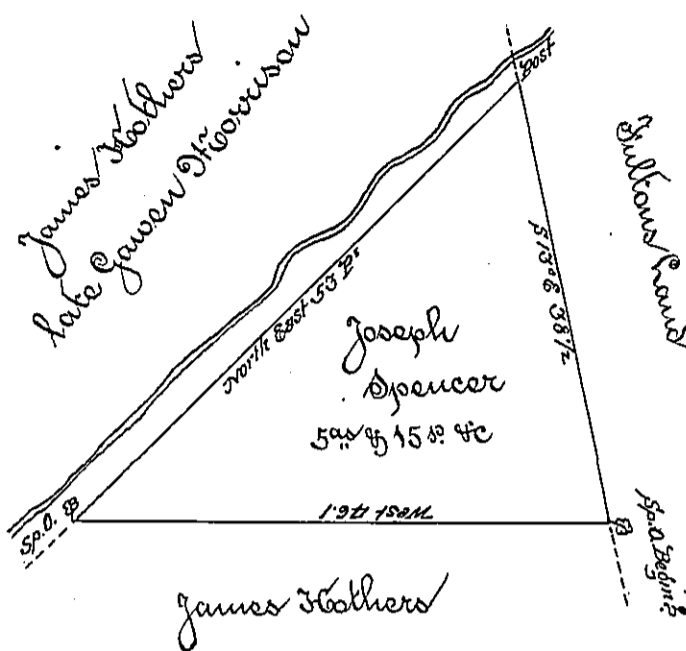 James Hothers
late Gawen Morrison
Post
Fultons Land
North East 53 Ps
S 13° E 38 1/2
Joseph
Spencer
5 as & 15 ps &c
West 46.1
Sp. O.
Sp. O Begin.g
James Hothers